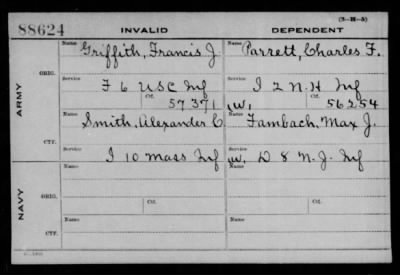 (3-H-5)
88624 INVALID DEPENDENT
ARMY
ORIG.
Name Griffith, Francis J. Name Parrett, Charles F.
Service Service
F 6 USC Inf I 2 N.H Inf
Ctf. 57371 W, Ctf. 56254
CTF.
Name Smith, Alexander C Name Fambach, Max J.
Service Service
I 10 Mass Inf W. D 8 N.J. Inf
NAVY
ORIG.
Name Name
Service Ctf. Service Ctf.
CTF.
Name Name